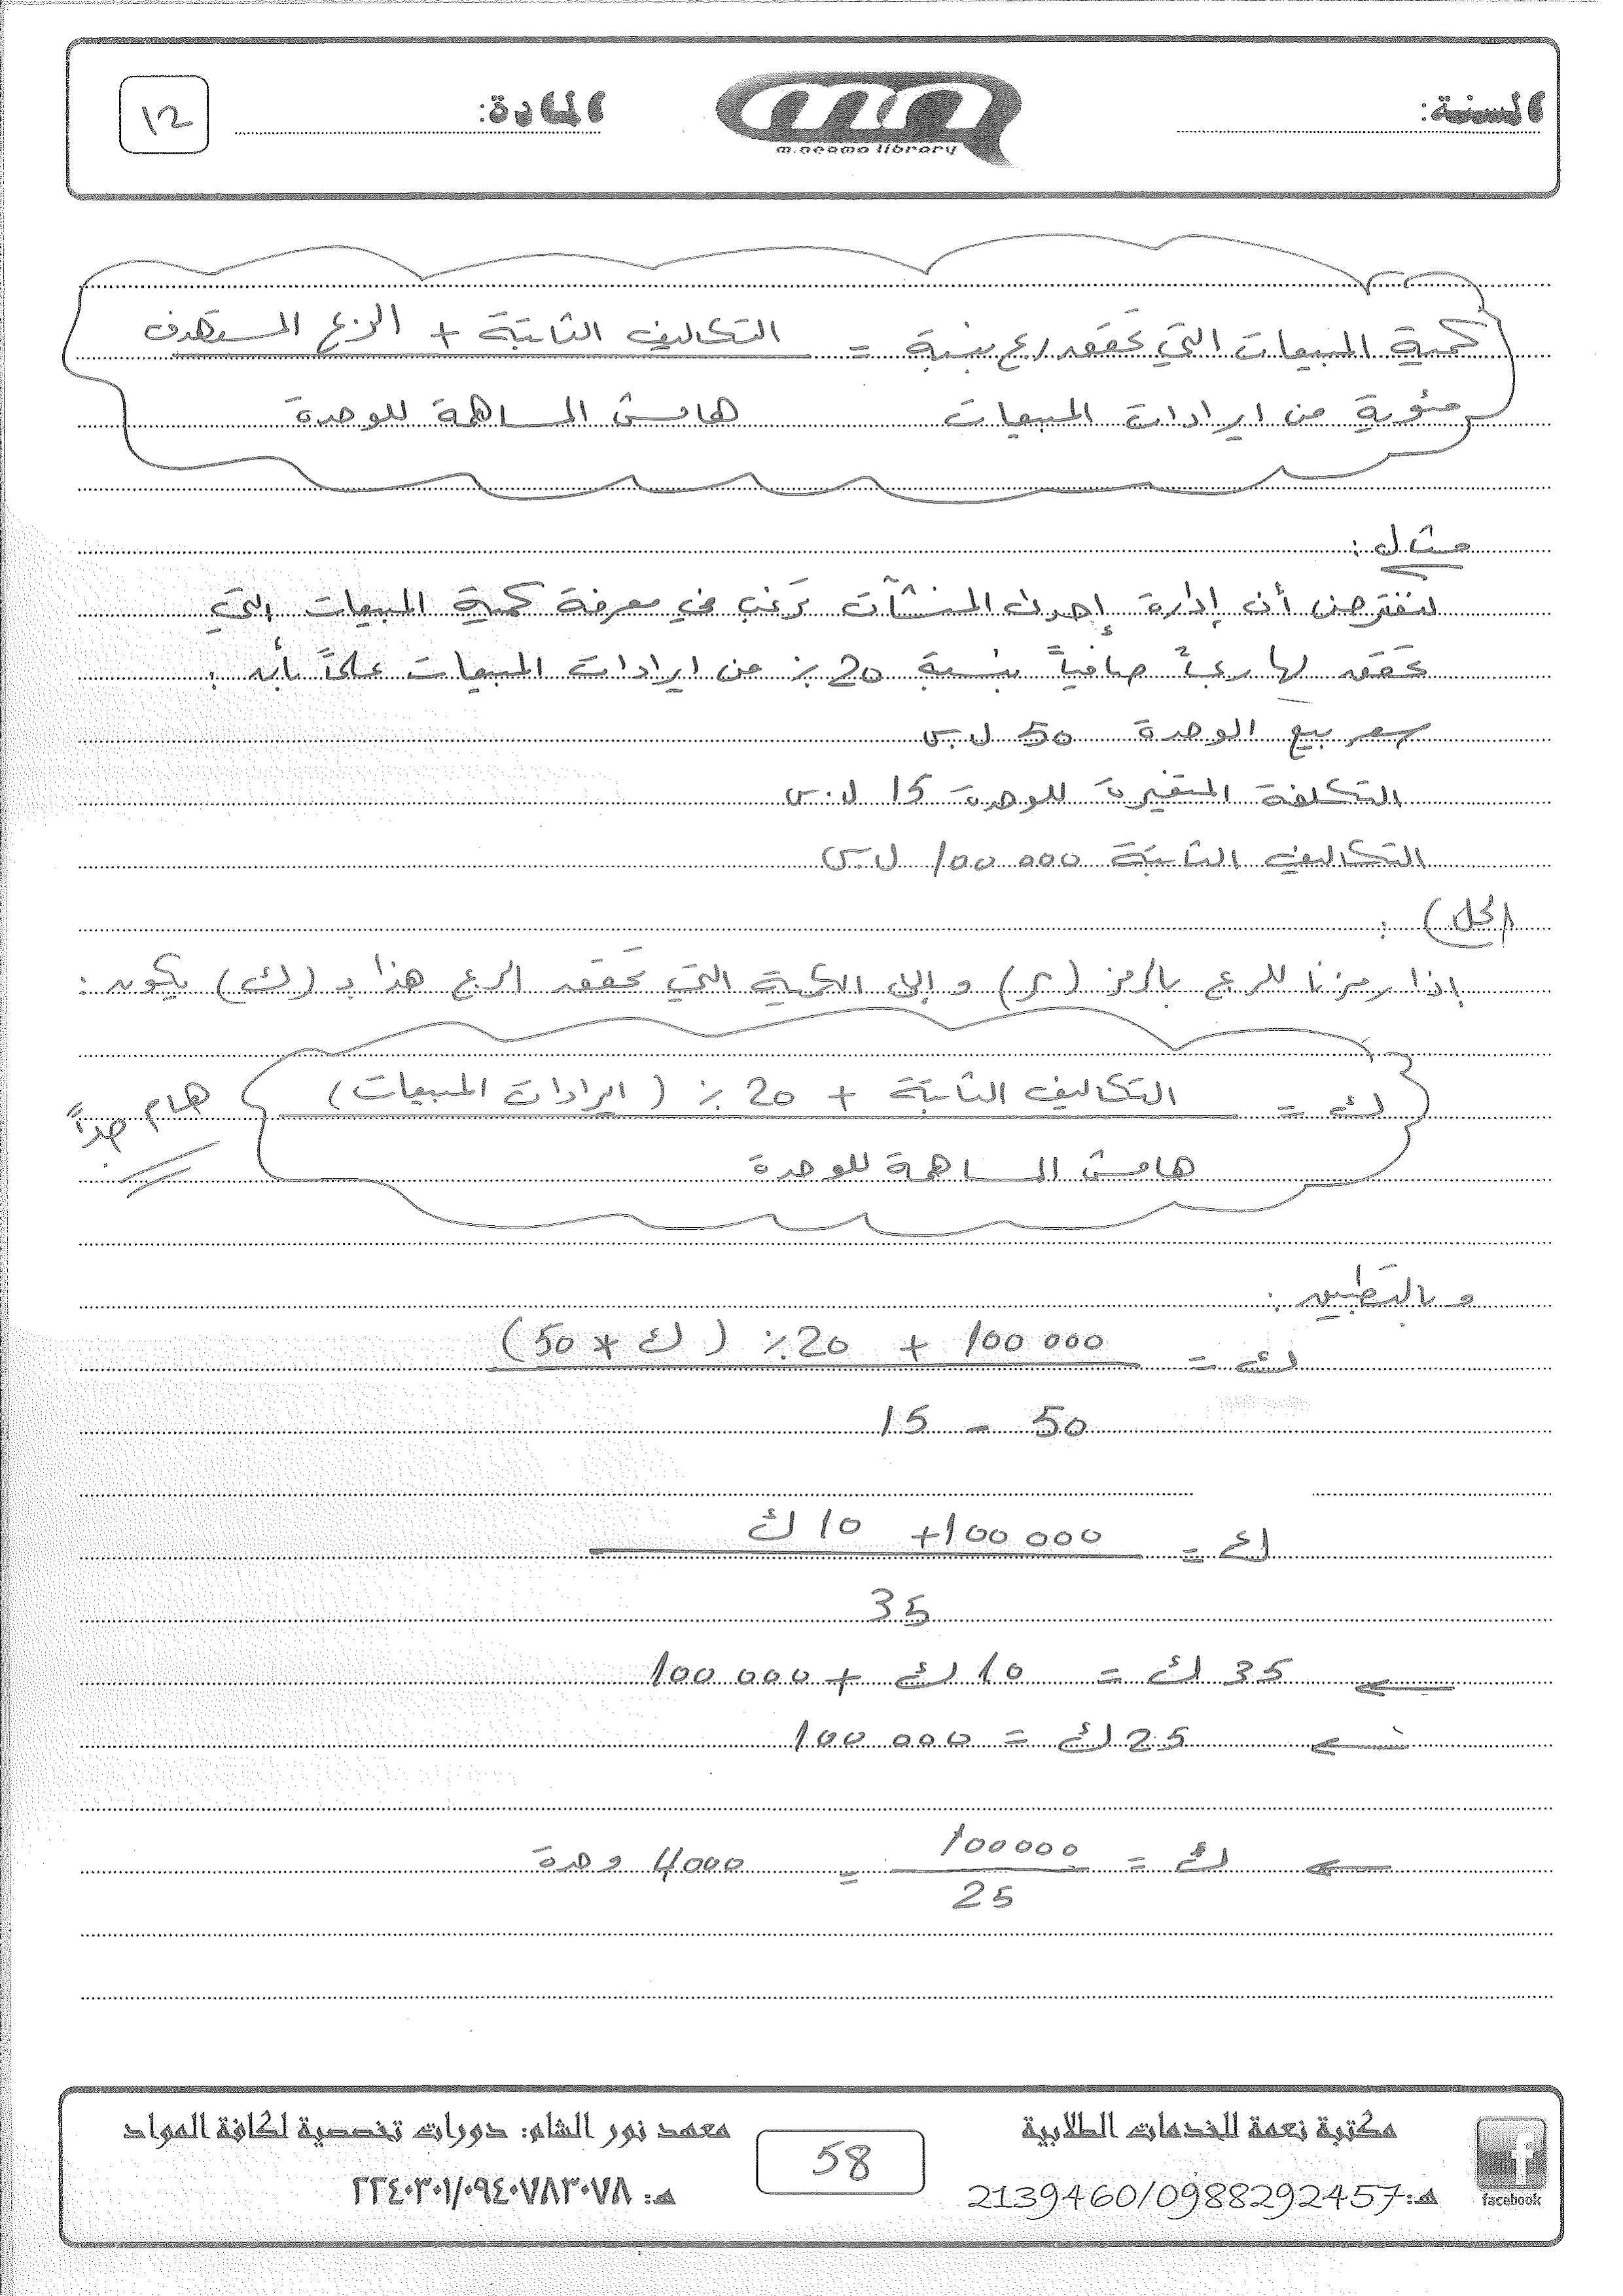 السنة:
m.neama library
المادة:
١٢
كمية المبيعات التي تحقق ربح بنسبة = التكاليف الثابتة + الربح المستهدف
مئوية من ايرادات المبيعات هامش المساهمة للوحدة
مثال :
لنفترض أن إدارة إحدى المنشآت ترغب في معرفة كمية المبيعات التي
تحقق لها ربحاً صافياً بنسبة 20 ٪ من ايرادات المبيعات علماً بأن :
سعر بيع الوحدة 50 ل.س
التكلفة المتغيرة للوحدة 15 ل.س
التكاليف الثابتة 100 000 ل.س
الحل) :
إذا رمزنا للربح بالرمز (ر) و إلى الكمية التي تحقق الربح هذا بـ (ك) يكون :
ك = التكاليف الثابتة + 20 ٪ (ايرادات المبيعات)
هامش المساهمة للوحدة
هام جداً
و بالتطبيق :
ك = 100 000 + 20٪ (ك * 50)
50 - 15
ك = 100 000 + 10 ك
35
← 35 ك = 10 ك + 100 000
← 25 ك = 100 000
← ك = 100000 = 4000 وحدة
25
مكتبة نعمة للخدمات الطلابية
هـ: 2139460/0988292457
facebook
58
معهد نور الشام: دورات تخصصية لكافة المواد
هـ: ٢٢٤٠٣٠١/٠٩٤٠٧٨٣٠٧٨